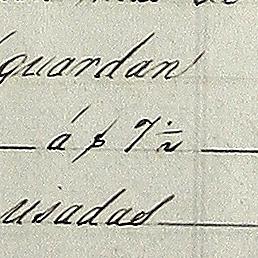 guardan
á $ 7 ½
usadas